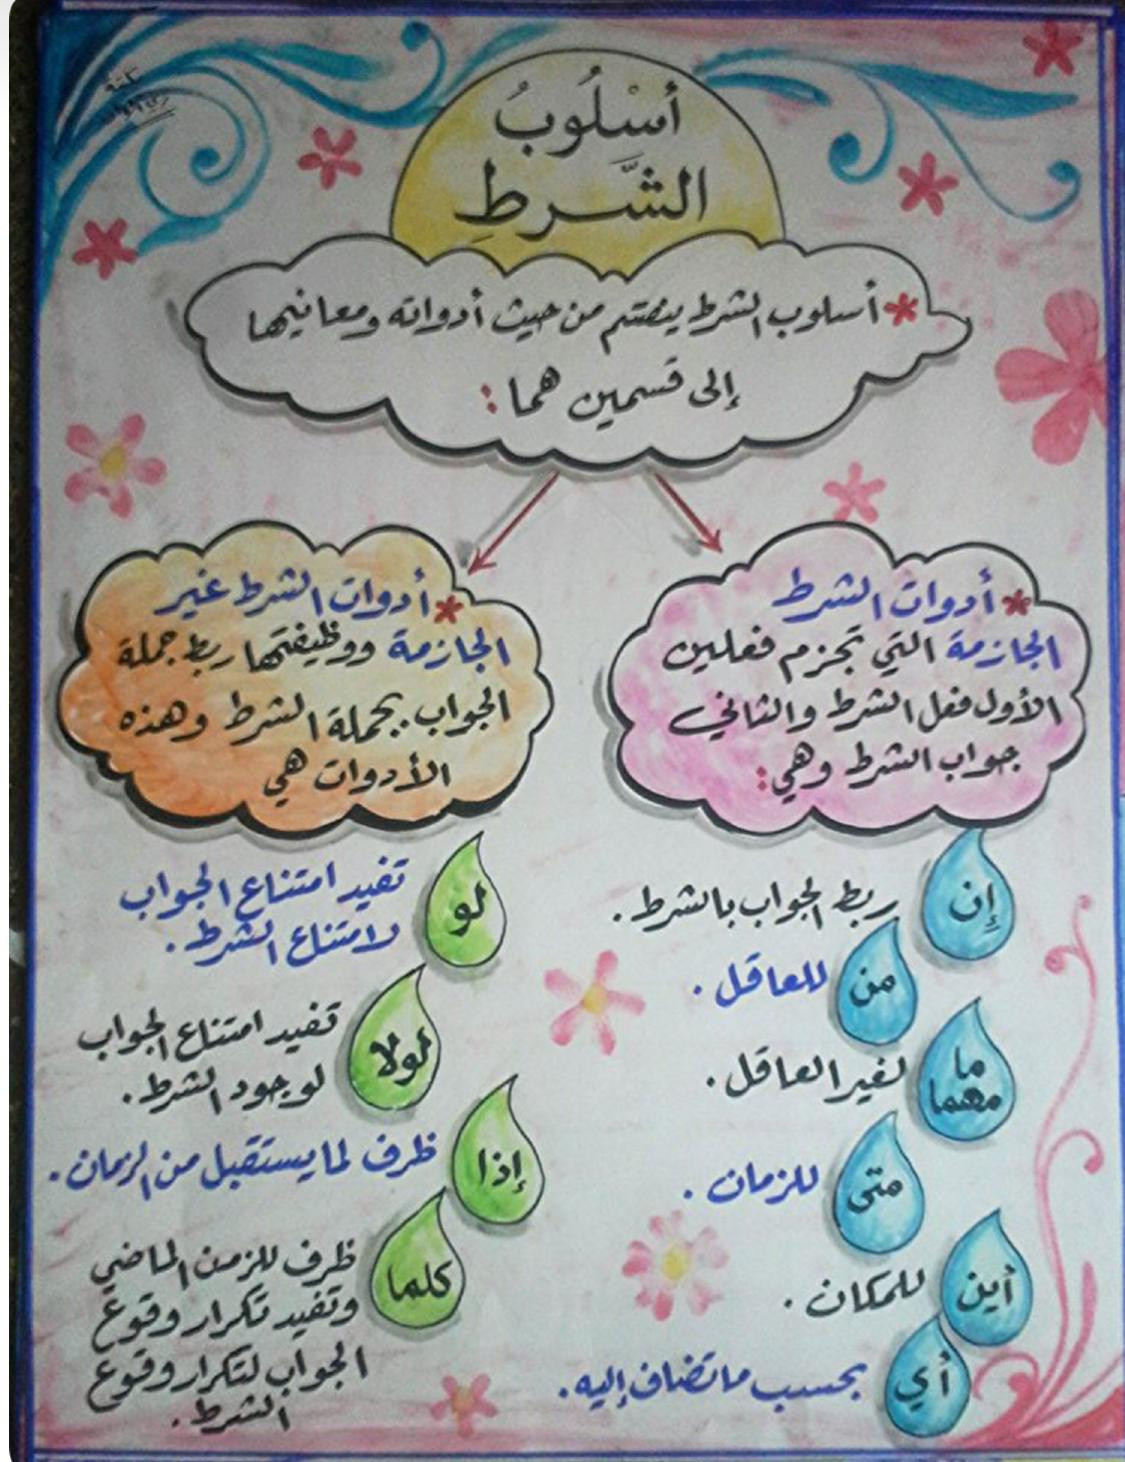 أسْلُوبُ
الشَّرطِ
* أسلوب الشرط ينقسم من حيث أدواته ومعانيها
إلى قسمين هما :
* أدوات الشرط
الجازمة التي تجزم فعلين
الأول فعل الشرط والثاني
جواب الشرط وهي :
إن
ربط الجواب بالشرط .
من
للعاقل .
ما
مهما
لغير العاقل .
متى
للزمان .
أين
للمكان .
أي
بحسب ما تضاف إليه .
* أدوات الشرط غير
الجازمة ووظيفتها ربط جملة
الجواب بجملة الشرط وهذه
الأدوات هي
لو
تفيد امتناع الجواب
لامتناع الشرط .
لولا
تفيد امتناع الجواب
لوجود الشرط .
إذا
ظرف لما يستقبل من الزمان .
كلما
ظرف للزمن الماضي
وتفيد تكرار وقوع
الجواب لتكرار وقوع
الشرط .